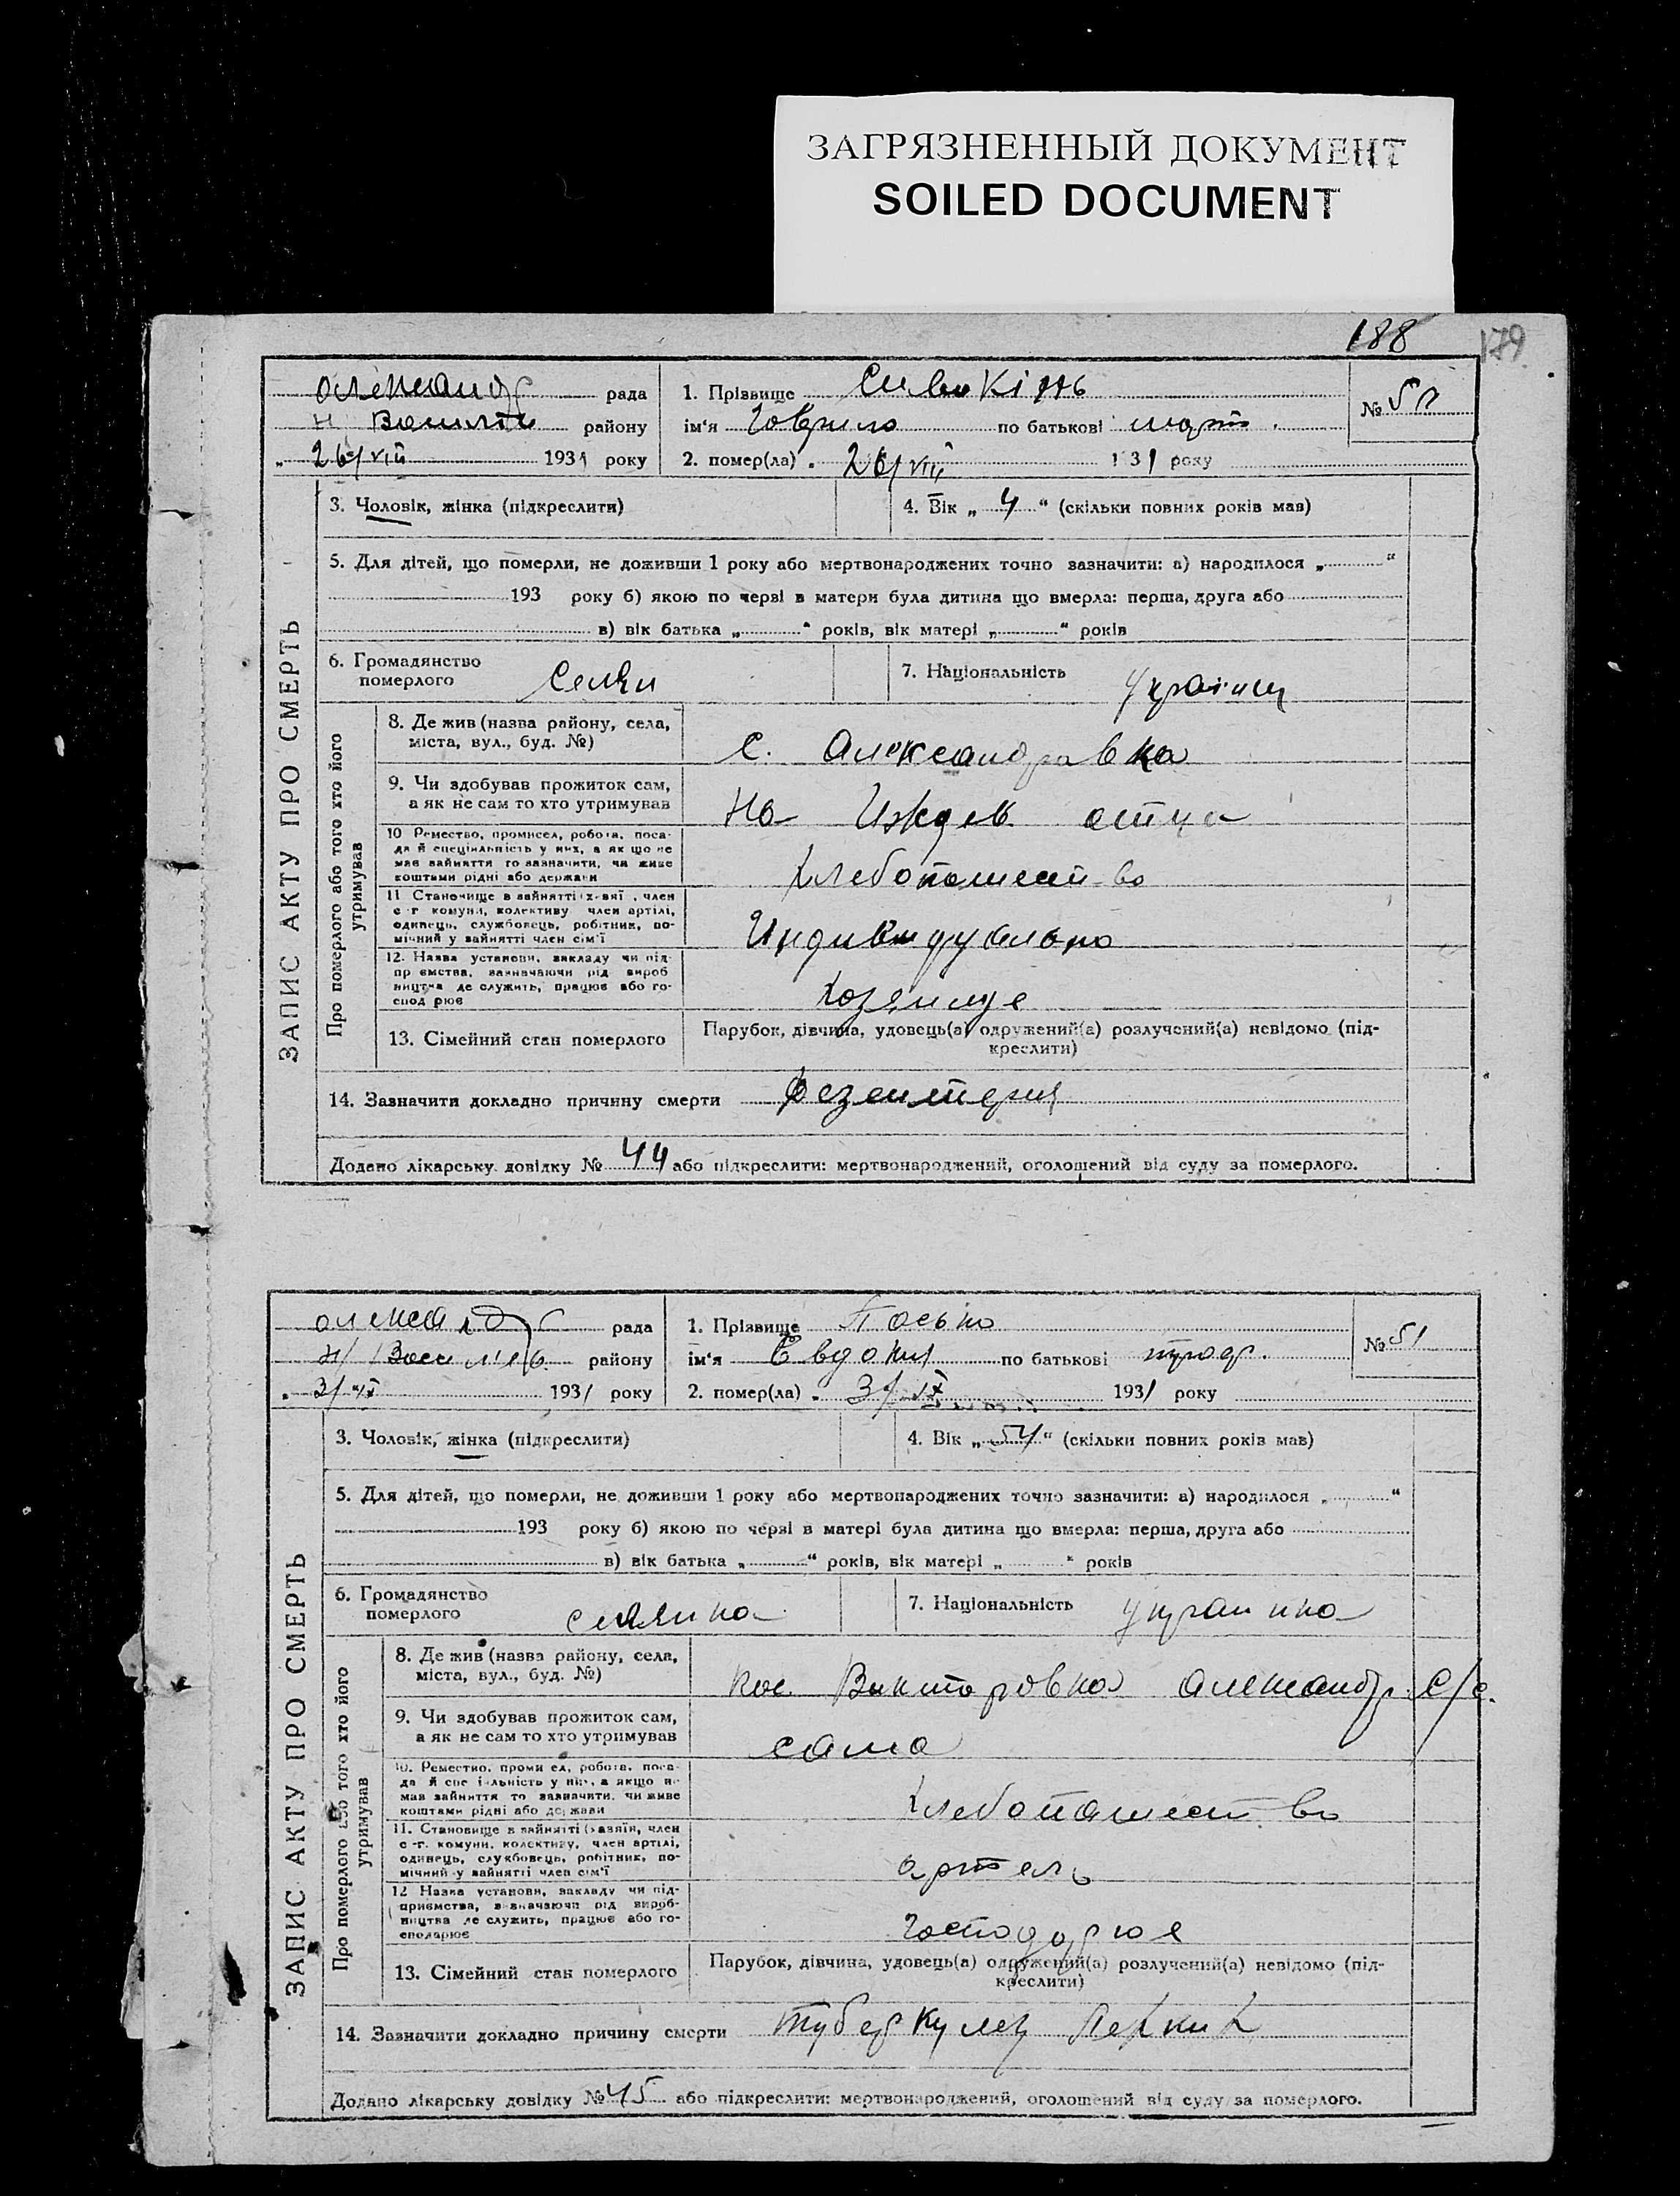 ЗАГРЯЗНЕННЫЙ ДОКУМЕНТ
SOILED DOCUMENT
188 179
ЗАПИС АКТУ ПРО СМЕРТЬ
рада 1. Прізвище №
району ім'я по батькові
„26/VIII 1931 року 2. помер(ла) „ 26/VIII 1931 року
3. Чоловік, жінка (підкреслити) 4. Вік „4“ (скільки повних років мав)
5. Для дітей, що померли, не доживши 1 року або мертвонароджених точно зазначити: а) народилося „ “
193 року б) якою по черзі в матери була дитина що вмерла: перша, друга або
в) вік батька „ “ років, вік матері „ “ років
6. Громадянство
померлого Селян
7. Національність українц
Про померлого або того хто його
утримував
8. Де жив (назва району, села,
міста, вул., буд. №) с. Александравка
9. Чи здобував прожиток сам,
а як не сам то хто утримував На Иждев отца
10 Ремество, промисел, робота, поса-
да й спеціяльність у них, а як що не
мав зайняття то зазначити, чи живе
коштами рідні або держави
Хлебопашест-во
11 Становище в зайнятті
с-г комуни, колективу член артілі,
одинець, службовець, робітник, по-
мічний у зайнятті член сім'ї
Индивидуально
12. Назва установи, закладу чи під-
де служить, працює або го-
13. Сімейний стан померлого Парубок, дівчина, удовець(а) одружений(а) розлучений(а) невідомо (під-
креслити)
14. Зазначити докладно причину смерти Дезентерия
Додано лікарську довідку № 44 або підкреслити: мертвонароджений, оголошений від суду за померлого.
ЗАПИС АКТУ ПРО СМЕРТЬ
рада 1. Прізвище Посько № 51
району ім'я Евдокия по батькові
„ 3/IX 1931 року 2. помер(ла) „ 3/IX 1931 року
3. Чоловік, жінка (підкреслити) 4. Вік „54“ (скільки повних років мав)
5. Для дітей, що померли, не доживши 1 року або мертвонароджених точно зазначити: а) народилося „ “
193 року б) якою по черзі в матері була дитина що вмерла: перша, друга або
в) вік батька „ “ років, вік матері „ “ років
6. Громадянство
померлого селянка
7. Національність украинка
Про померлого або того хто його
утримував
8. Де жив (назва району, села,
міста, вул., буд. №) пос Викторовка Александр. с/с.
9. Чи здобував прожиток сам,
а як не сам то хто утримував сама
10. Ремество, промисел, робота, поса-
да й спеціяльність у них, а якщо не
мав зайняття то зазначити, чи живе
коштами рідні або держави
Хлебопашест-во
11. Становище в зайнятті (хазяїн, член
с-г. комуни, колективу, член артілі,
одинець, службовець, робітник, по-
мічний у зайнятті член сім'ї
артель
12 Назва установи, закладу чи під-
приємства, зазначаючи рід вироб-
ництва де служить, працює або го-
сподарює
господарює
13. Сімейний стан померлого Парубок, дівчина, удовець(а) одружений(а) розлучений(а) невідомо (під-
креслити)
14. Зазначити докладно причину смерти туберкулез Легких
Додано лікарську довідку № 45 або підкреслити: мертвонароджений, оголошений від суду за померлого.